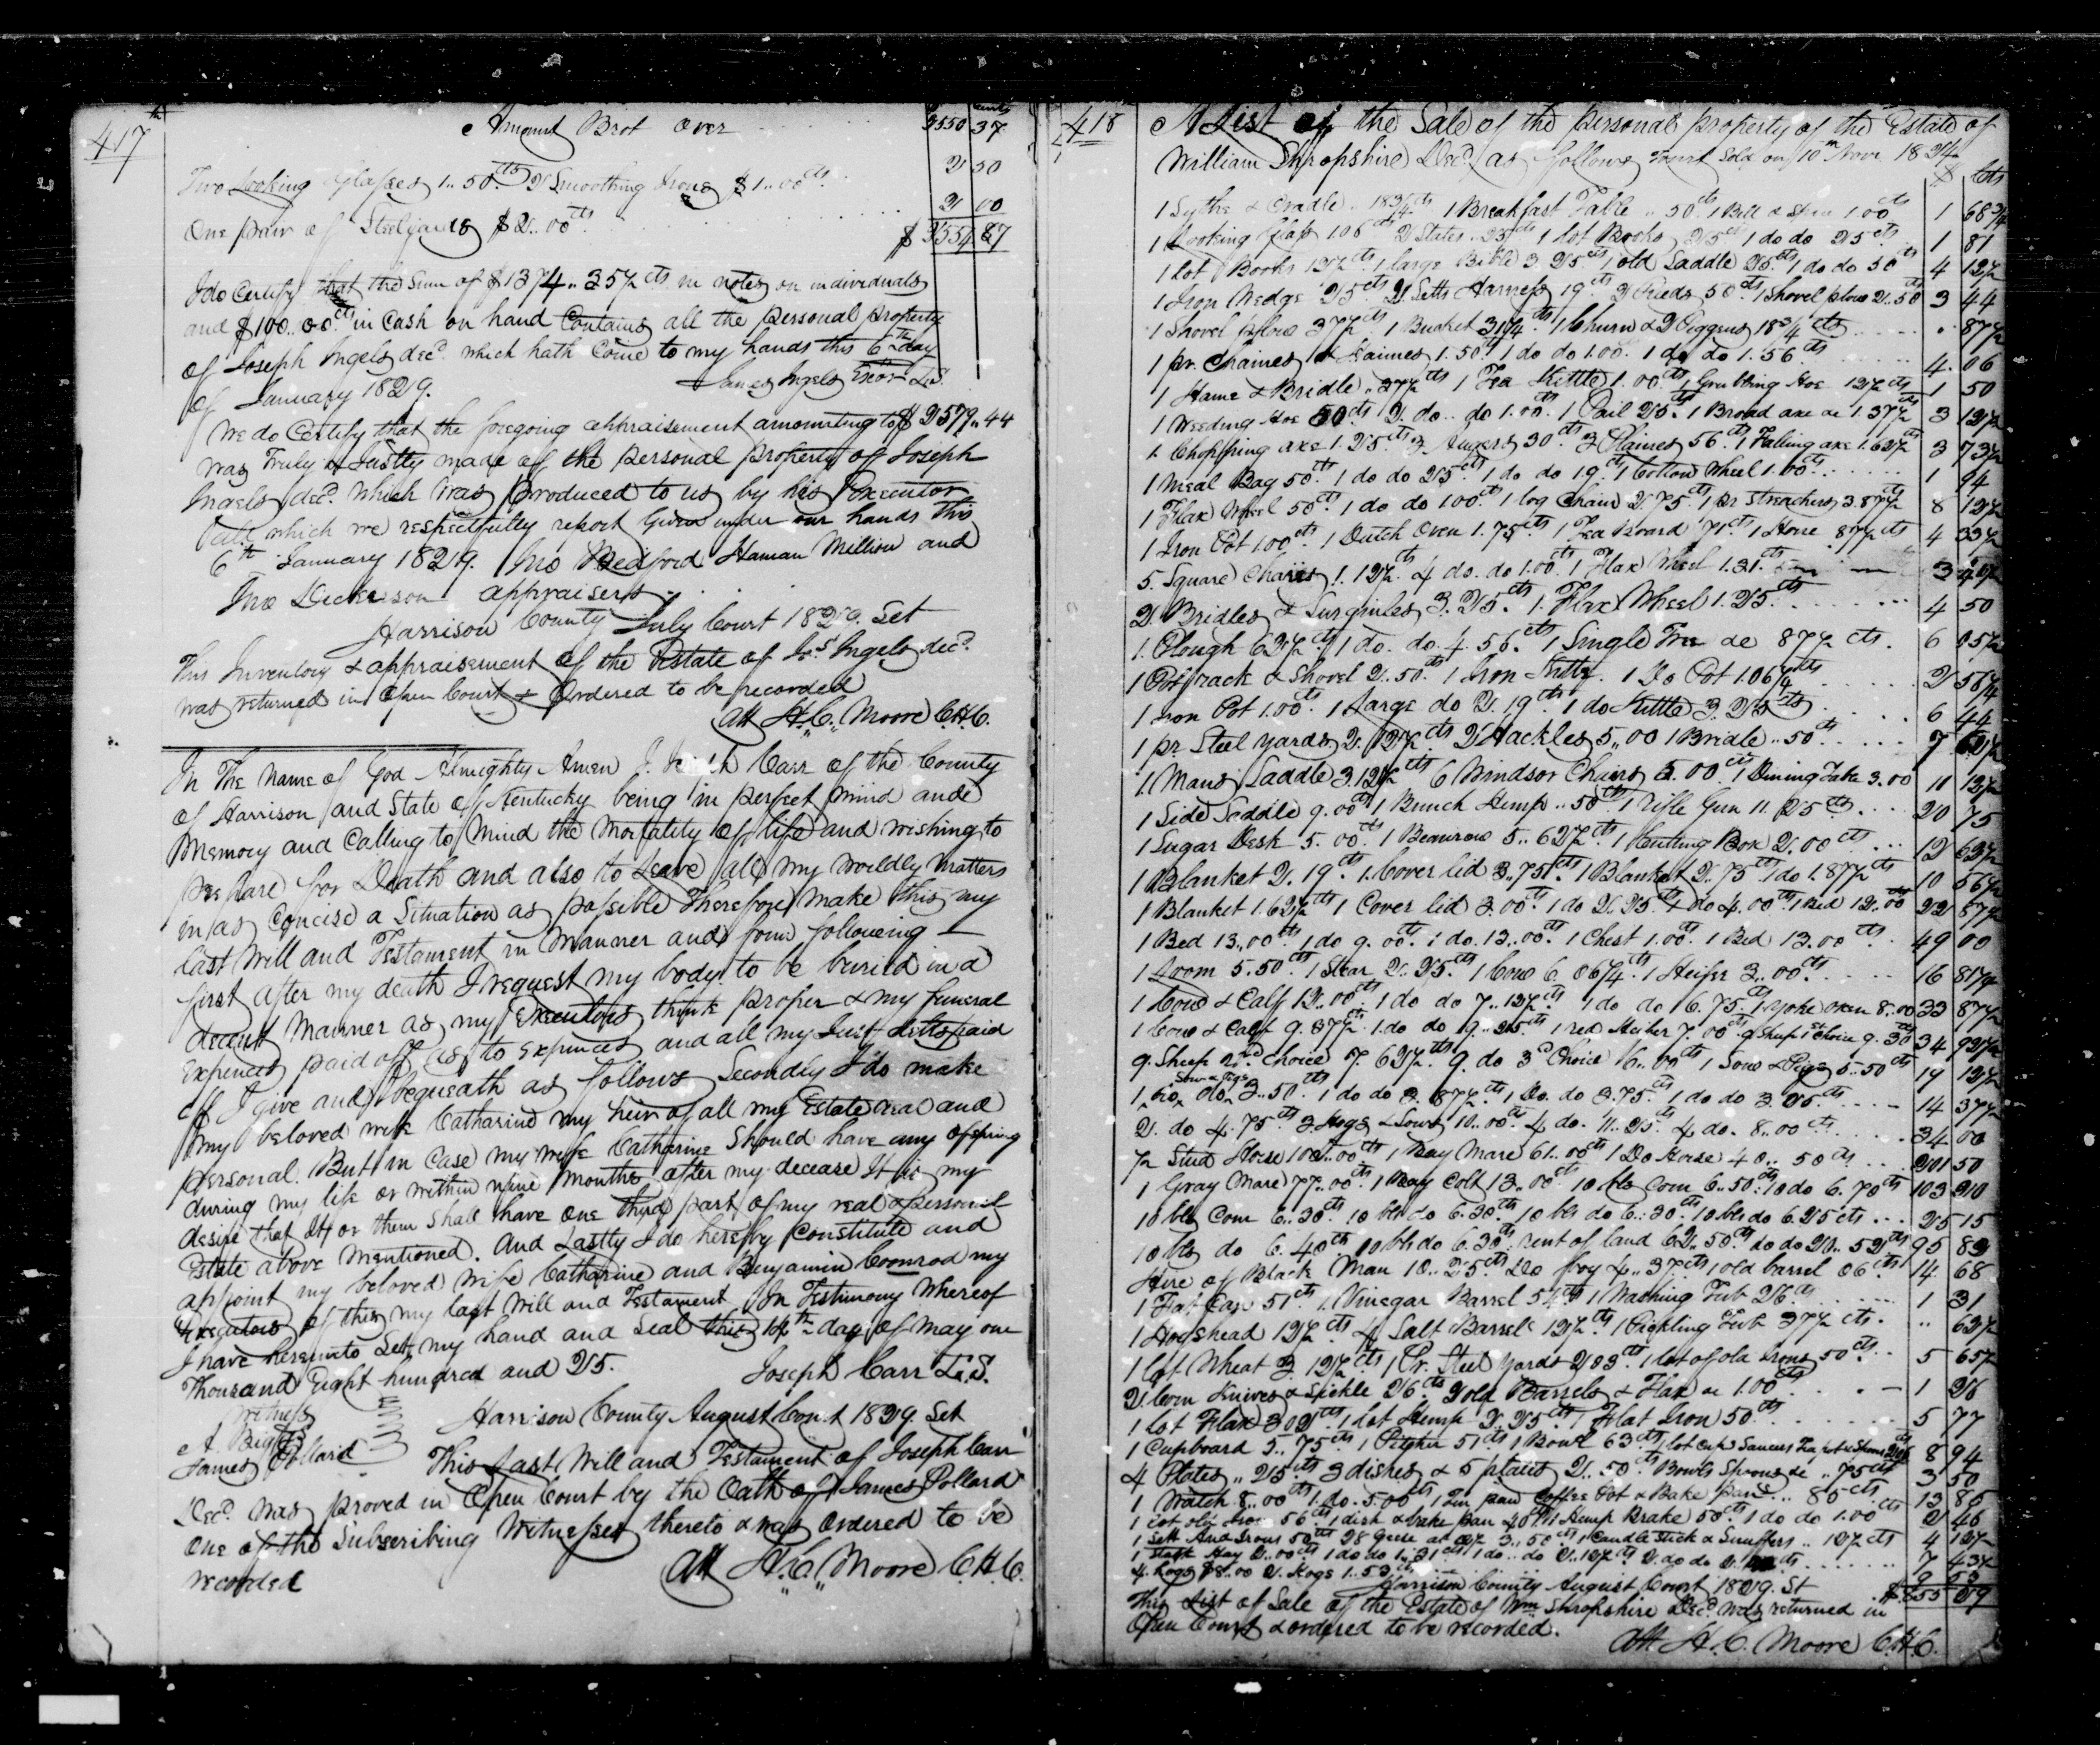 417
Amount Brot over 3550 37
Two Looking Glasses 1..50 cts 2 Smoothing Irons $1..00 cts 2 50
One pair of Steelyards $2..00 cts 2 00
$ 3554 87
I do Certify that the Sum of $1374..35½ cts in notes on individuals
and $100..00 cts in Cash on hand Contains all the personal property
of Joseph Ingels decd. which hath Come to my hands this 6th day
of January 1829. James Ingels Exor L.S.
We do Certify that the foregoing appraisement amounting to $ 2579..44
was Truly & Justly made of the personal property of Joseph
Ingels decd. which was produced to us by his Executor
all which we respectfully report Given under our hands this
6th January 1829. Jno Bedford Haman Million and
Jno Dickerson appraisers
Harrison County July Court 1829. Set
This Inventory & appraisement of the Estate of Jos Ingels decd.
was returned in Open Court & Ordered to be recorded
Att H.C. Moore C.H.C.
In The Name of God Almighty Amen I. Carr of the County
of Harrison and State of Kentucky being in perfect mind and
Memory and Calling to Mind the Mortality of life and wishing to
prepare for Death and also to Leave all my worldly Matters
in as Concise a Situation as possible Therefore make this my
last Will and Testament in Manner and form following
first after my death I request my body to be buried in a
decent Manner as my Executors think proper & my funeral
Expences paid off as to Expences and all my Just debts paid
off I give and bequeath as follows Secondly I do make
my beloved wife Catharine my heir of all my Estate real and
personal. But in Case my wife Catharine Should have any ofspring
during my life or within nine Months after my decease It is my
desire that It or them Shall have One third part of my real & personal
Estate above Mentioned. And Lastly I do hereby Constitute and
appoint my beloved wife Catharine and Benjamin Coonrod my
Executors of this my last Will and Testament In Testimony Whereof
I have hereunto Set my hand and Seal this 14th day of May one
Thousand Eight hundred and 25. Joseph Carr L.S.
Witness
A.
James Pollard
Harrison County August Court 1829. Set
This Last Will and Testament of Joseph Carr
Decd. was proved in Open Court by the Oath of James Pollard
One of the Subscribing Witnesses thereto & was Ordered to be
recorded
Att H.C. Moore C.H.C.
418
A List of the Sale of the personal property of the Estate of
William Shropshire Decd. as follows Towit Sold on 10th Novr. 1824
$ Cts
1 Sythe & Cradle .. 18¾ cts 1 Breakfast Table .. 50 cts 1 Bell & 1.00 cts 1 68¾
1 Looking Glass 106 cts 2 Slates .. 25 cts 1 lot Books 25 cts 1 do do 25 cts 1 81
1 lot Books 12½ cts 1 large Bible 3.25 cts 1 old Saddle 25 cts 1 do do 50 cts 4 12½
1 Iron Wedge 25 cts 2 Setts Harness 19 cts 2 Reeds 50 cts 1 Shovel plow 2.50 3 44
1 Shovel plow 37½ cts 1 Bucket 31¼ cts 1 Churn & 2 Piggens 18¾ cts 87½
1 pr. Chaines & Haimes 1.50 cts 1 do do 1.00 1 do do 1.56 cts 4.06
1 Hame & Bridle .. 37½ cts 1 Tea Kettle 1.00 cts 1 Grubbing Hoe 12½ cts 1 50
1 Weeding Hoe 50 cts 2 do.. do 1.00 cts 1 Pail 25 cts 1 Broad axe &c 1.37½ 3 12½
1 Chopping axe 1.25 cts 3 Augers 30 cts 3 Plaines 56 cts 1 Falling axe 1.62½ cts 3 73½
1 Meal Bag 50 cts 1 do do 25 cts 1 do do 19 cts 1 Cotton Wheel 1.00 cts 1 94
1 Flax Wheel 50 cts 1 do do 100 cts 1 log Chain 2.75 cts 1 pr Streachers 3.87½ 8 12½
1 Iron Pot 1.00 cts 1 Dutch Oven 1.75 cts 1 Tea Board 71 cts 1 87½ cts 4 33½
5 Square Chairs 1.12½ cts 4 do. do 1.00 cts 1 Flax Wheel 1.31 cts 3
2 Bridles & Surgines 3.25 cts 1 Flax Wheel 1.25 cts 4 50
1 Plough 63½ cts 1 do. do. 4.56 cts 1 Single Tree &c 87½ cts 6 05½
1 Potrack & Shovel 2..50 cts 1 Iron Kittle 1 Do Pot 1.06¼ cts 2 56¼
1 Iron Pot 1.00 cts 1 Large do 2.19 cts 1 do Kettle 3.25 cts 6 44
1 pr Steel yards 2.12½ cts 2 Hackles 5,,00 1 Bridle ..50 cts 7 62½
1 Mans Saddle 3.12½ cts 6 Windsor Chairs 5.00 cts 1 Dining Table 3.00 11 12½
1 Side Saddle 9.00 cts 1 Bunch Hemp ..50 cts 1 Rifle Gun 11.25 cts 20 75
1 Sugar Desk 5.00 cts 1 Beaurow 5..62½ cts 1 Cutting Box 2.00 cts 12 62½
1 Blanket 2.19 cts 1 Cover lid 3.75 cts 1 Blanket 2.75 cts 1 do 1.87½ cts 10 56½
1 Blanket 1.62½ cts 1 Cover lid 3.00 cts 1 do 2.25 cts 1 do 4.00 cts 1 Bed 12.00 22 87½
1 Bed 13..00 cts 1 do 9.00 cts 1 do. 13..00 cts 1 Chest 1.00 cts 1 Bed 13.00 cts 49 00
1 Loom 5.50 cts 1 Stear 2..25 cts 1 Cow 6.06¼ cts 1 Heifer 3..00 cts 16 81¼
1 Cow & Calf 12..00 cts 1 do do 7..12½ cts 1 do do 6.75 cts 1 Yoke oxen 8..00 33 87½
1 Cow & Calf 9.37½ 1 do do 9..25 cts 1 red Heifer 7.00 cts 9 Sheep 1st Choice 9.30 cts 34 92½
9 Sheep 2nd Choice 7.62½ cts 9 do 3d Choice 6..00 cts 1 Sow & Pigs 5..50 cts 19 12½
1 Sow & Pigs do 3..50 cts 1 do do 3.87½ cts 1 Do. do 3.75 cts 1 do do 3.25 cts 14 37½
2 do 4.75 cts 3 Hogs & Sows 10..00 cts 4 do. 11..25 cts 4 do. 8..00 cts 34 00
½ Stud Horse 100..00 cts 1 Bay Mare 61..00 cts 1 Do Horse 40..50 cts 201 50
1 Gray Mare 77..00 cts 1 Bay Colt 13..00 cts 10 bls Corn 6..50 cts 10 do 6.70 cts 103 20
10 bls Corn 6..30 cts 10 bls do 6.30 cts 10 bls do 6..30 cts 10 bls do 6.25 cts 25 15
10 bls do 6.40 cts 10 bls do 6.30 cts rent of land 62..50 cts do do 20..52 cts 95 82
Hire of Black Man 10..25 cts Do boy 4..37 cts 1 old barrel 06 cts 14 68
1 Fat Can 51 cts 1 Vinegar Barrel 54 cts 1 Washing Tub 26 cts 1 31
1 Hogshead 12½ cts 4 Salt Barrels 12½ cts 1 Pickling Tub 37½ cts .. 62½
1 lot Wheat 3.12½ cts 1 Pr. Steel yards 2 03 cts 1 lot of old Irons 50 cts 5 65½
2 Corn Knives & Sickle 26 cts 2 old Barrels & Flax &c 1.00 cts 1 26
1 lot Flax 3 02 cts 1 lot Hemp 2.25 cts 1 Flat Iron 50 cts 5 77
1 Cupboard 5..75 cts 1 Pitcher 51 cts 1 Bowl 63 cts 1 lot Cups Saucers Teapot & Spoons 8 94
4 Plates .. 25 cts 3 dishes & 5 plates 2..50 cts Bowls Spoons &c .. 75 cts 3 50
1 Watch 8..00 cts 1 do. 5.00 cts 1 Tin pan Coffee Pot & Bake pan .. 85 cts 13 85
1 lot old Iron 56 cts 1 dish & bake pan 40 cts 1 Hemp Brake 50 cts 1 do do 1.00 cts 2 46
1 Sett And Irons 50 cts 28 Geese at 12½ 3..50 cts 1 Candle Stick & Snuffers .. 12½ cts 4 12½
1 Stack Hay 2..00 cts 1 do do 1..31 cts 1 do.. do 2..12½ cts 2 do do 2. cts 7 43½
4 hogs $8.00 2 Hogs 1..53 cts 9 53
Harrison County August Court 1829. St $ 853 29
This List of Sale of the Estate of Wm Shropshire Decd. was returned in
Open Court & ordered to be recorded.
Att. H.C. Moore C.H.C.